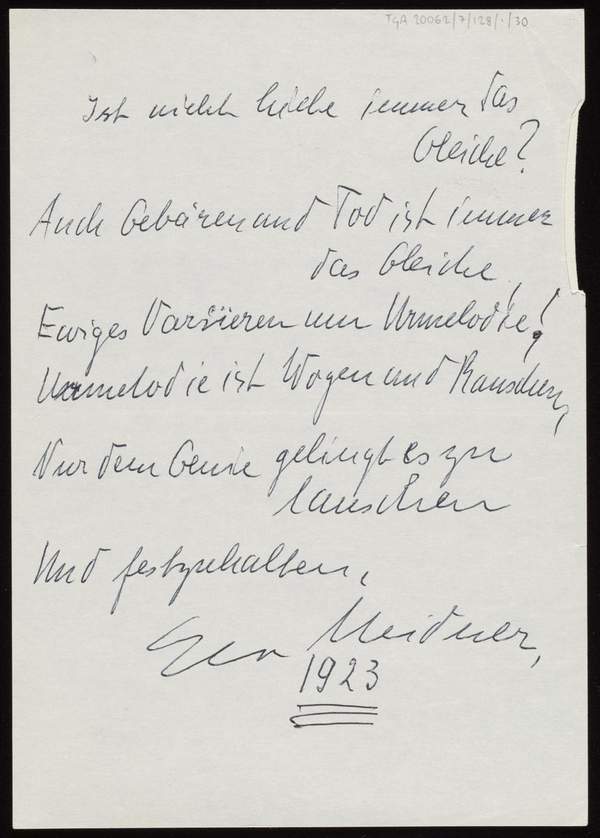 TGA 20062/7/128/1/30
Ist nicht Liebe immer das
Gleiche?
Auch Gebären und Tod ist immer
das Gleiche,
Ewiges Variieren um Urmelodie!
Urmelodie ist Wogen und Rauschen,
Nur dem Genie gelingt es zu
lauschen
Und festzuhalten,
Else Meidner,
1923